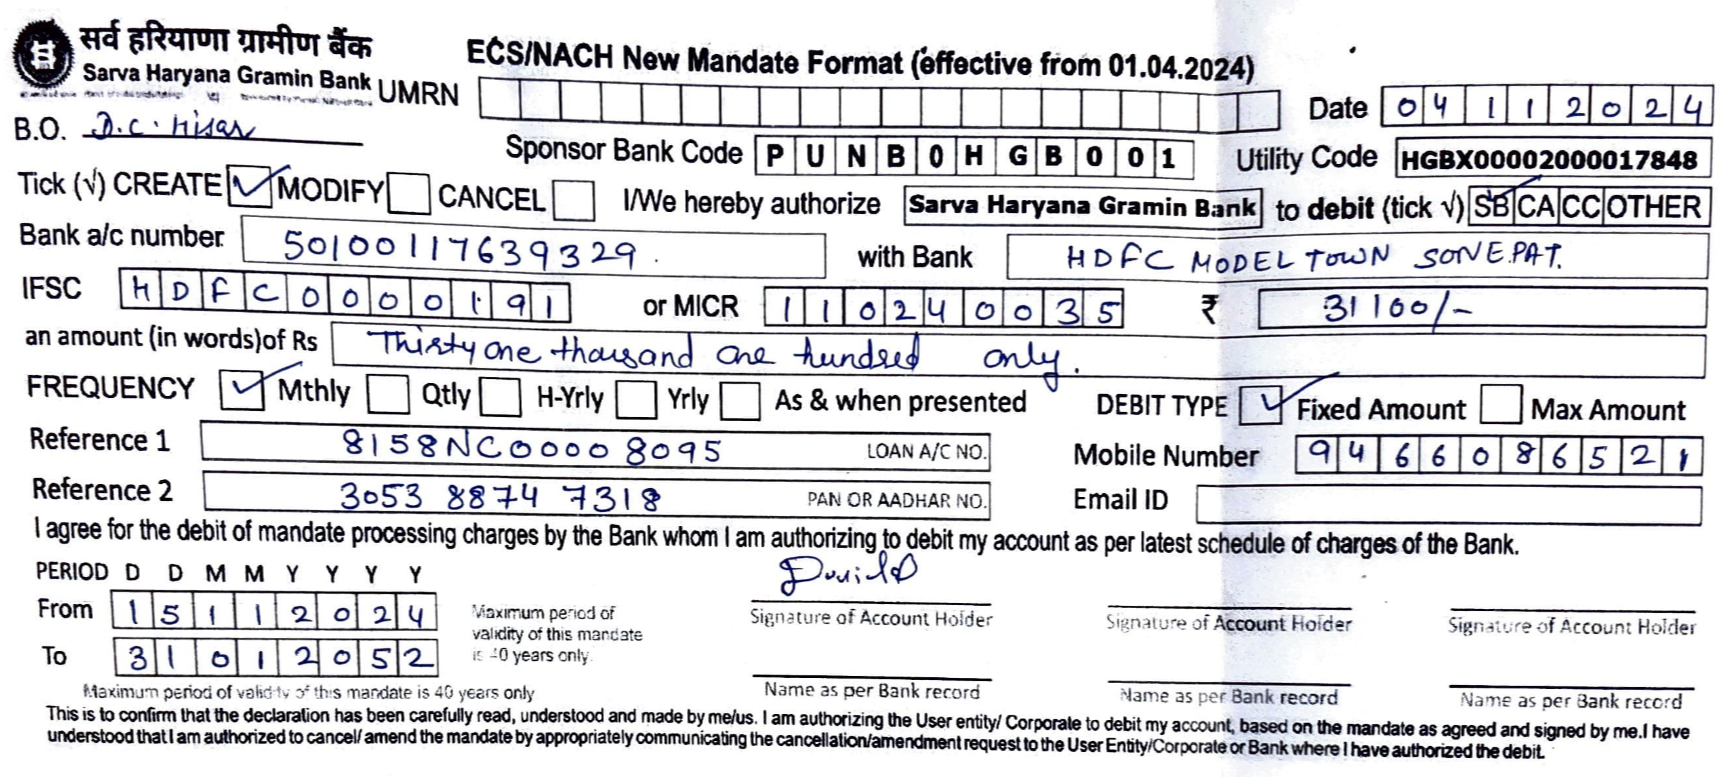 सर्व हरियाणा ग्रामीण बैंक
Sarva Haryana Gramin Bank
ECS/NACH New Mandate Format (effective from 01.04.2024)
UMRN Date 04112024
B.O. D.C. Hisar
Sponsor Bank Code PUNB0HGB001 Utility Code HGBX00002000017848
Tick (√) CREATE ✓ MODIFY CANCEL I/We hereby authorize Sarva Haryana Gramin Bank to debit (tick √) SB ✓ CA CC OTHER
Bank a/c number 50100117639329 with Bank HDFC MODEL TOWN SONEPAT.
IFSC HDFC0000191 or MICR 110240035 ₹ 31100/-
an amount (in words)of Rs Thirty one thousand one hundred only.
FREQUENCY ✓ Mthly Qtly H-Yrly Yrly As & when presented DEBIT TYPE ✓ Fixed Amount Max Amount
Reference 1 8158NC00008095 LOAN A/C NO. Mobile Number 9466086521
Reference 2 3053 8874 7318 PAN OR AADHAR NO. Email ID
I agree for the debit of mandate processing charges by the Bank whom I am authorizing to debit my account as per latest schedule of charges of the Bank.
PERIOD D D M M Y Y Y Y
From 15112024
To 31012052
Maximum period of validity of this mandate is 40 years only
Signature of Account Holder Signature of Account Holder Signature of Account Holder
Name as per Bank record Name as per Bank record Name as per Bank record
Maximum period of validity of this mandate is 40 years only
This is to confirm that the declaration has been carefully read, understood and made by me/us. I am authorizing the User entity/ Corporate to debit my account, based on the mandate as agreed and signed by me.I have
understood that I am authorized to cancel/ amend the mandate by appropriately communicating the cancellation/amendment request to the User Entity/Corporate or Bank where I have authorized the debit.